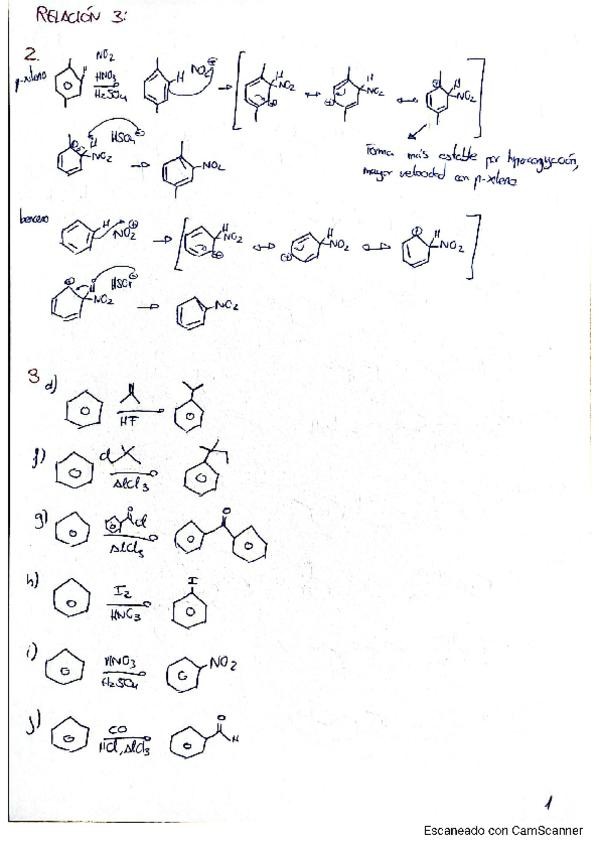 RELACIÓN 3:
2.
p-xileno
NO2
HNO3
H2SO4
H NO2⊕
H
NO2
H
NO2
H
NO2
H
NO2
HSO4⊖
NO2
Forma más estable por hiperconjugación,
mayor velocidad con p-xileno
benceno
H
NO2⊕
H
NO2
H
NO2
H
NO2
H
NO2
NO2
3
d)
HF
f)
cl
AlCl3
g)
O
cl
AlCl3
O
h)
I2
HNO3
I
i)
HNO3
H2SO4
NO2
j)
CO
HCl, AlCl3
O
H
1
Escaneado con CamScanner